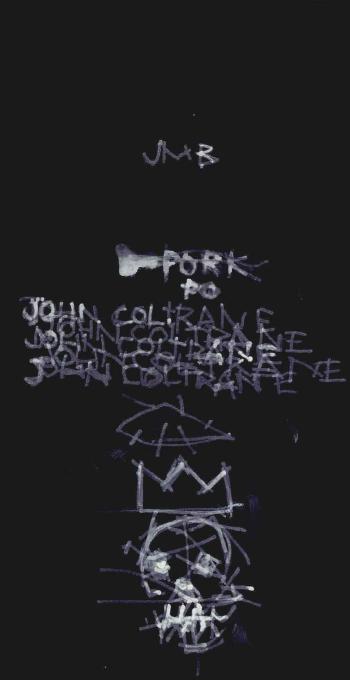 JMB
PORK
PO
JOHN COLTRANE
JOHN COLTRANE
JOHN COLTRANE
JOHN COLTRANE
JOHN COLTRANE
JOHN COLTRANE